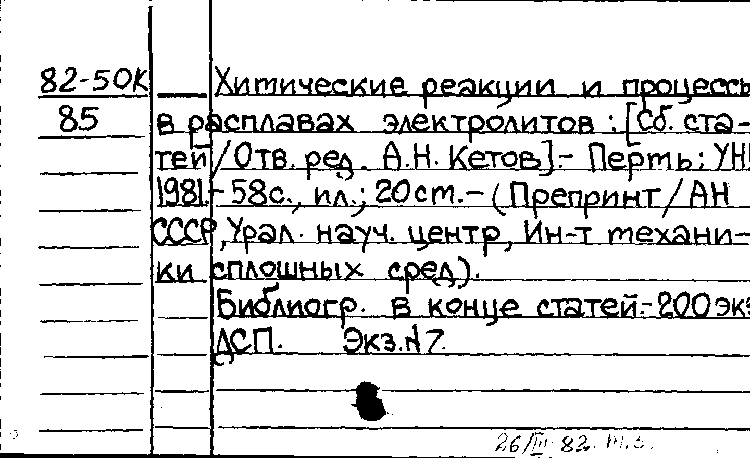 82-50К Химические реакции и процессы
85 в расплавах электролитов : [Сб. ста-
тей /Отв. ред. А.Н. Кетов].- Пермь: УНЦ
1981.- 58с., ил.; 20см.- (Препринт/АН
СССР, Урал. науч. центр, Ин-т механи-
ки сплошных сред).
Библиогр. в конце статей.- 200 экз
ДСП. Экз.№7.
26/III 82